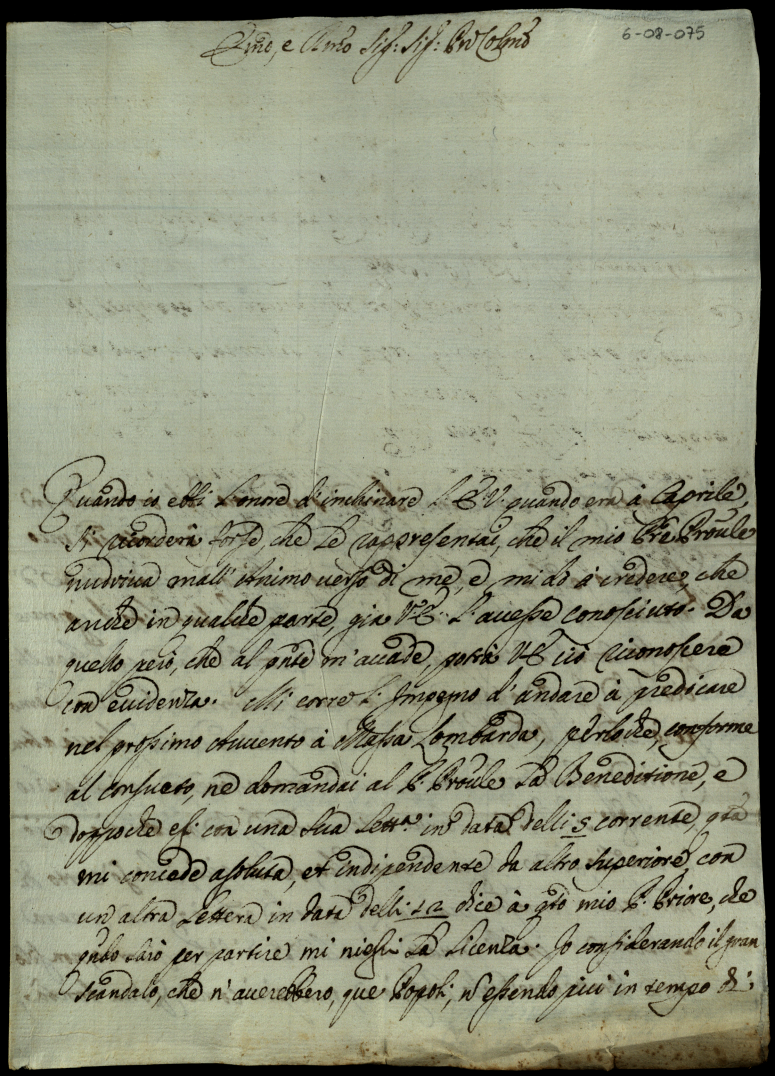 6-08-075
Emo, e Rmo Sig: Sig: Pron Colmo
Quando io ebbi l'onore d'inchinare l'E V. quando era à Caprile,
si ricorderà forse, che Le rappresentai, che il mio Pre Prõule
nudriva mall'Animo verso di me, e mi do à credere, che
anche in qualche parte, gia V.E. L'avesse conosciuto. Da
quello però, che al pnte m'accade, potrà V.E ciò riconoscere
con evidenza. Mi corre L'Impegno d'andare à predicare
nel prossimo Avvento à Massa Lombarda, perloche, conforme
al consueto, ne domandai al P. Prõule La Beneditione, e
doppoche esso con una Sua Letta in data delli 5 corrente, gia
mi concede assoluta, et indipendente da altro superiore, con
un'altra Lettera in data delli 12 dice à qto mio P. Priore, che
qndo sarò per partire mi nieghi La Licenza. Io considerando il gran
scandalo, che n'averebbero, que Popoli, n essendo più in tempo di: